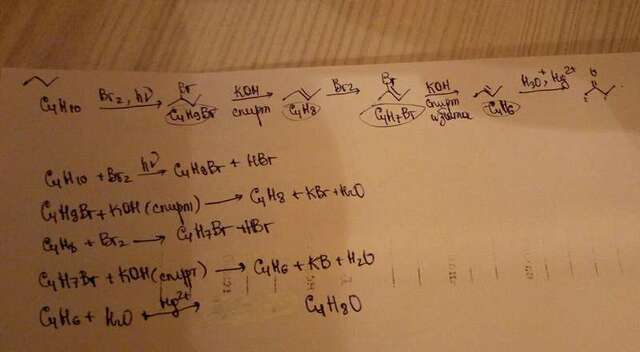 C4H10 Br2, hν C4H9Br KOH спирт C4H8 Br2 Br C4H7Br KOH спирт C4H6 H3O+, Hg2+ O
C4H10 + Br2 hν→ C4H9Br + HBr
C4H9Br + KOH (спирт) → C4H8 + KBr + H2O
C4H8 + Br2 → C4H7Br + HBr
C4H7Br + KOH (спирт) → C4H6 + KB + H2O
C4H6 + H2O Hg2+→ C4H8O